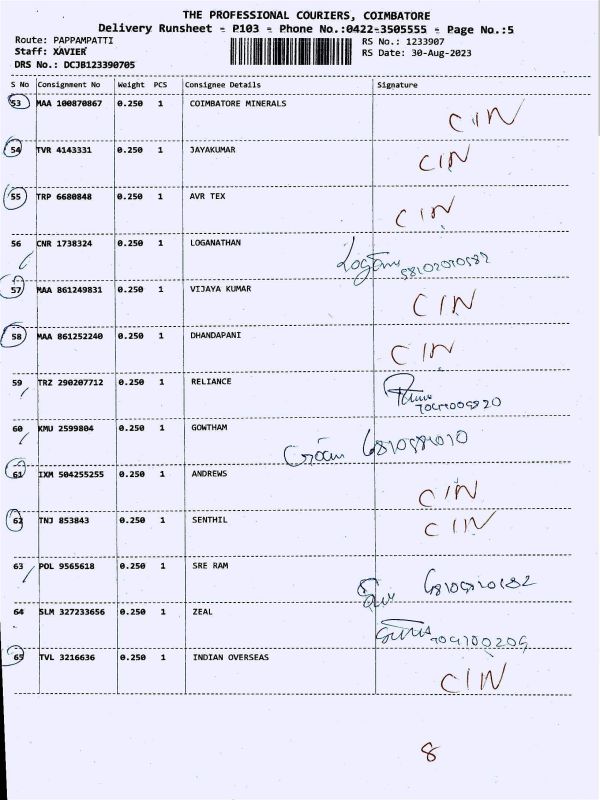 THE PROFESSIONAL COURIERS, COIMBATORE
Delivery Runsheet - P103 - Phone No.:0422-3505555 - Page No.:5
Route: PAPPAMPATTI RS No.: 1233907
Staff: XAVIER RS Date: 30-Aug-2023
DRS No.: DCJB123390705
S No Consignment No Weight PCS Consignee Details Signature
53 MAA 100870867 0.250 1 COIMBATORE MINERALS CIN
54 TVR 4143331 0.250 1 JAYAKUMAR CIN
55 TRP 6680848 0.250 1 AVR TEX CIN
56 CNR 1738324 0.250 1 LOGANATHAN
57 MAA 861249831 0.250 1 VIJAYA KUMAR CIN
58 MAA 861252240 0.250 1 DHANDAPANI CIN
59 TRZ 290207712 0.250 1 RELIANCE
60 KMU 2599804 0.250 1 GOWTHAM
61 IXM 504255255 0.250 1 ANDREWS CIN
62 TNJ 853843 0.250 1 SENTHIL CIN
63 POL 9565618 0.250 1 SRE RAM
64 SLM 327233656 0.250 1 ZEAL
65 TVL 3216636 0.250 1 INDIAN OVERSEAS CIN
8